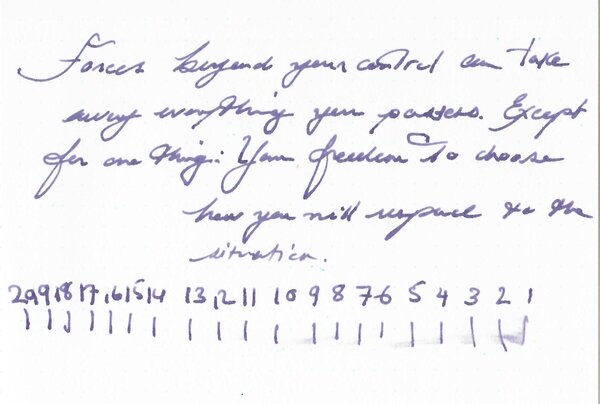 Forces beyond your control can take
away everything you possess. Except
for one thing: Your freedom to choose
how you will respond to the
situation.
20 19 18 17 16 15 14 13 12 11 10 9 8 7 6 5 4 3 2 1